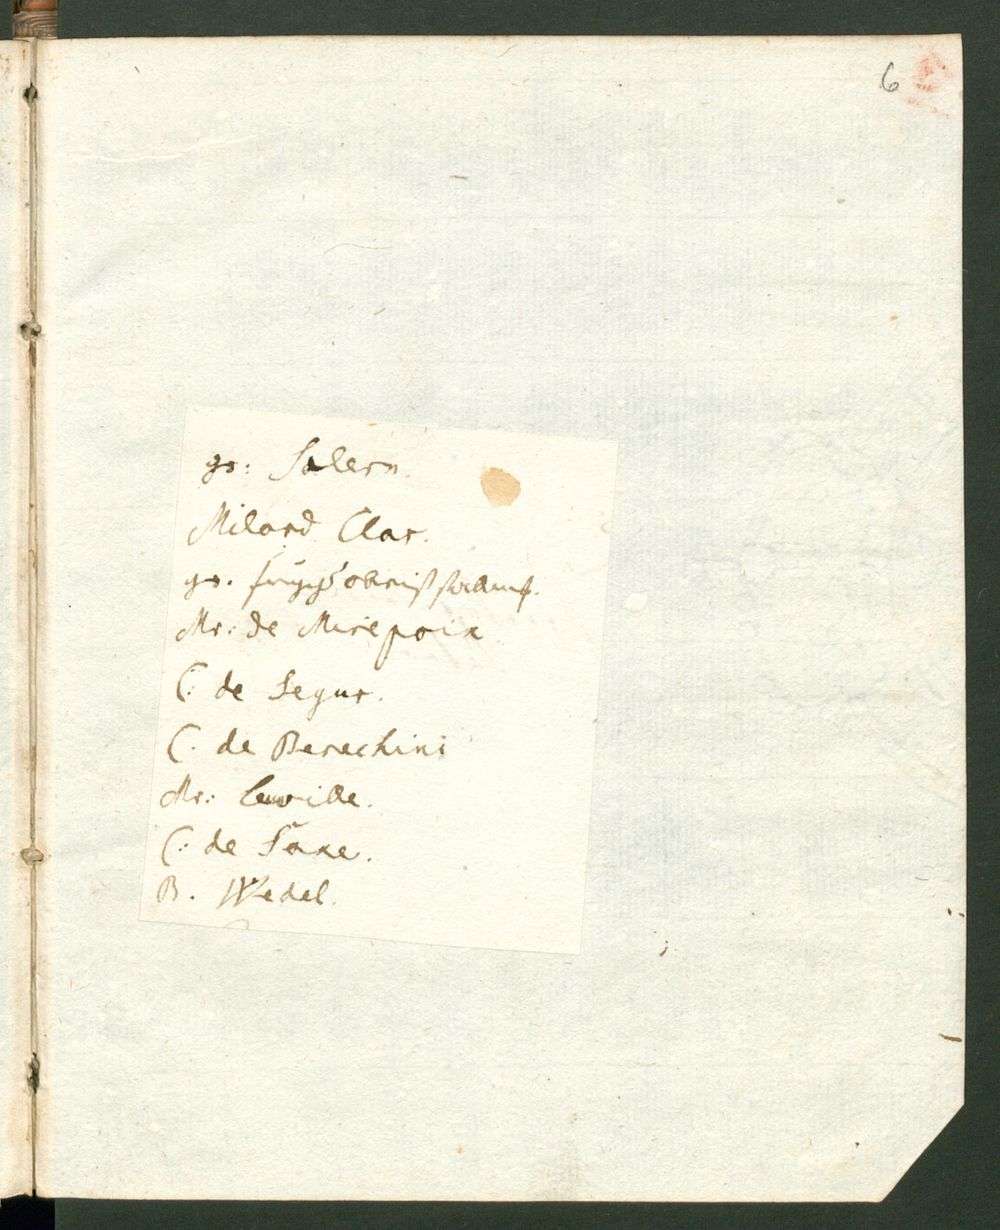 6
gr: Salern.
Milord Clar.
gr.
Mr: de Mirepoix
C: de Segur.
C. de Berechini
Mr:
C: de Saxe.
B. Wedel.